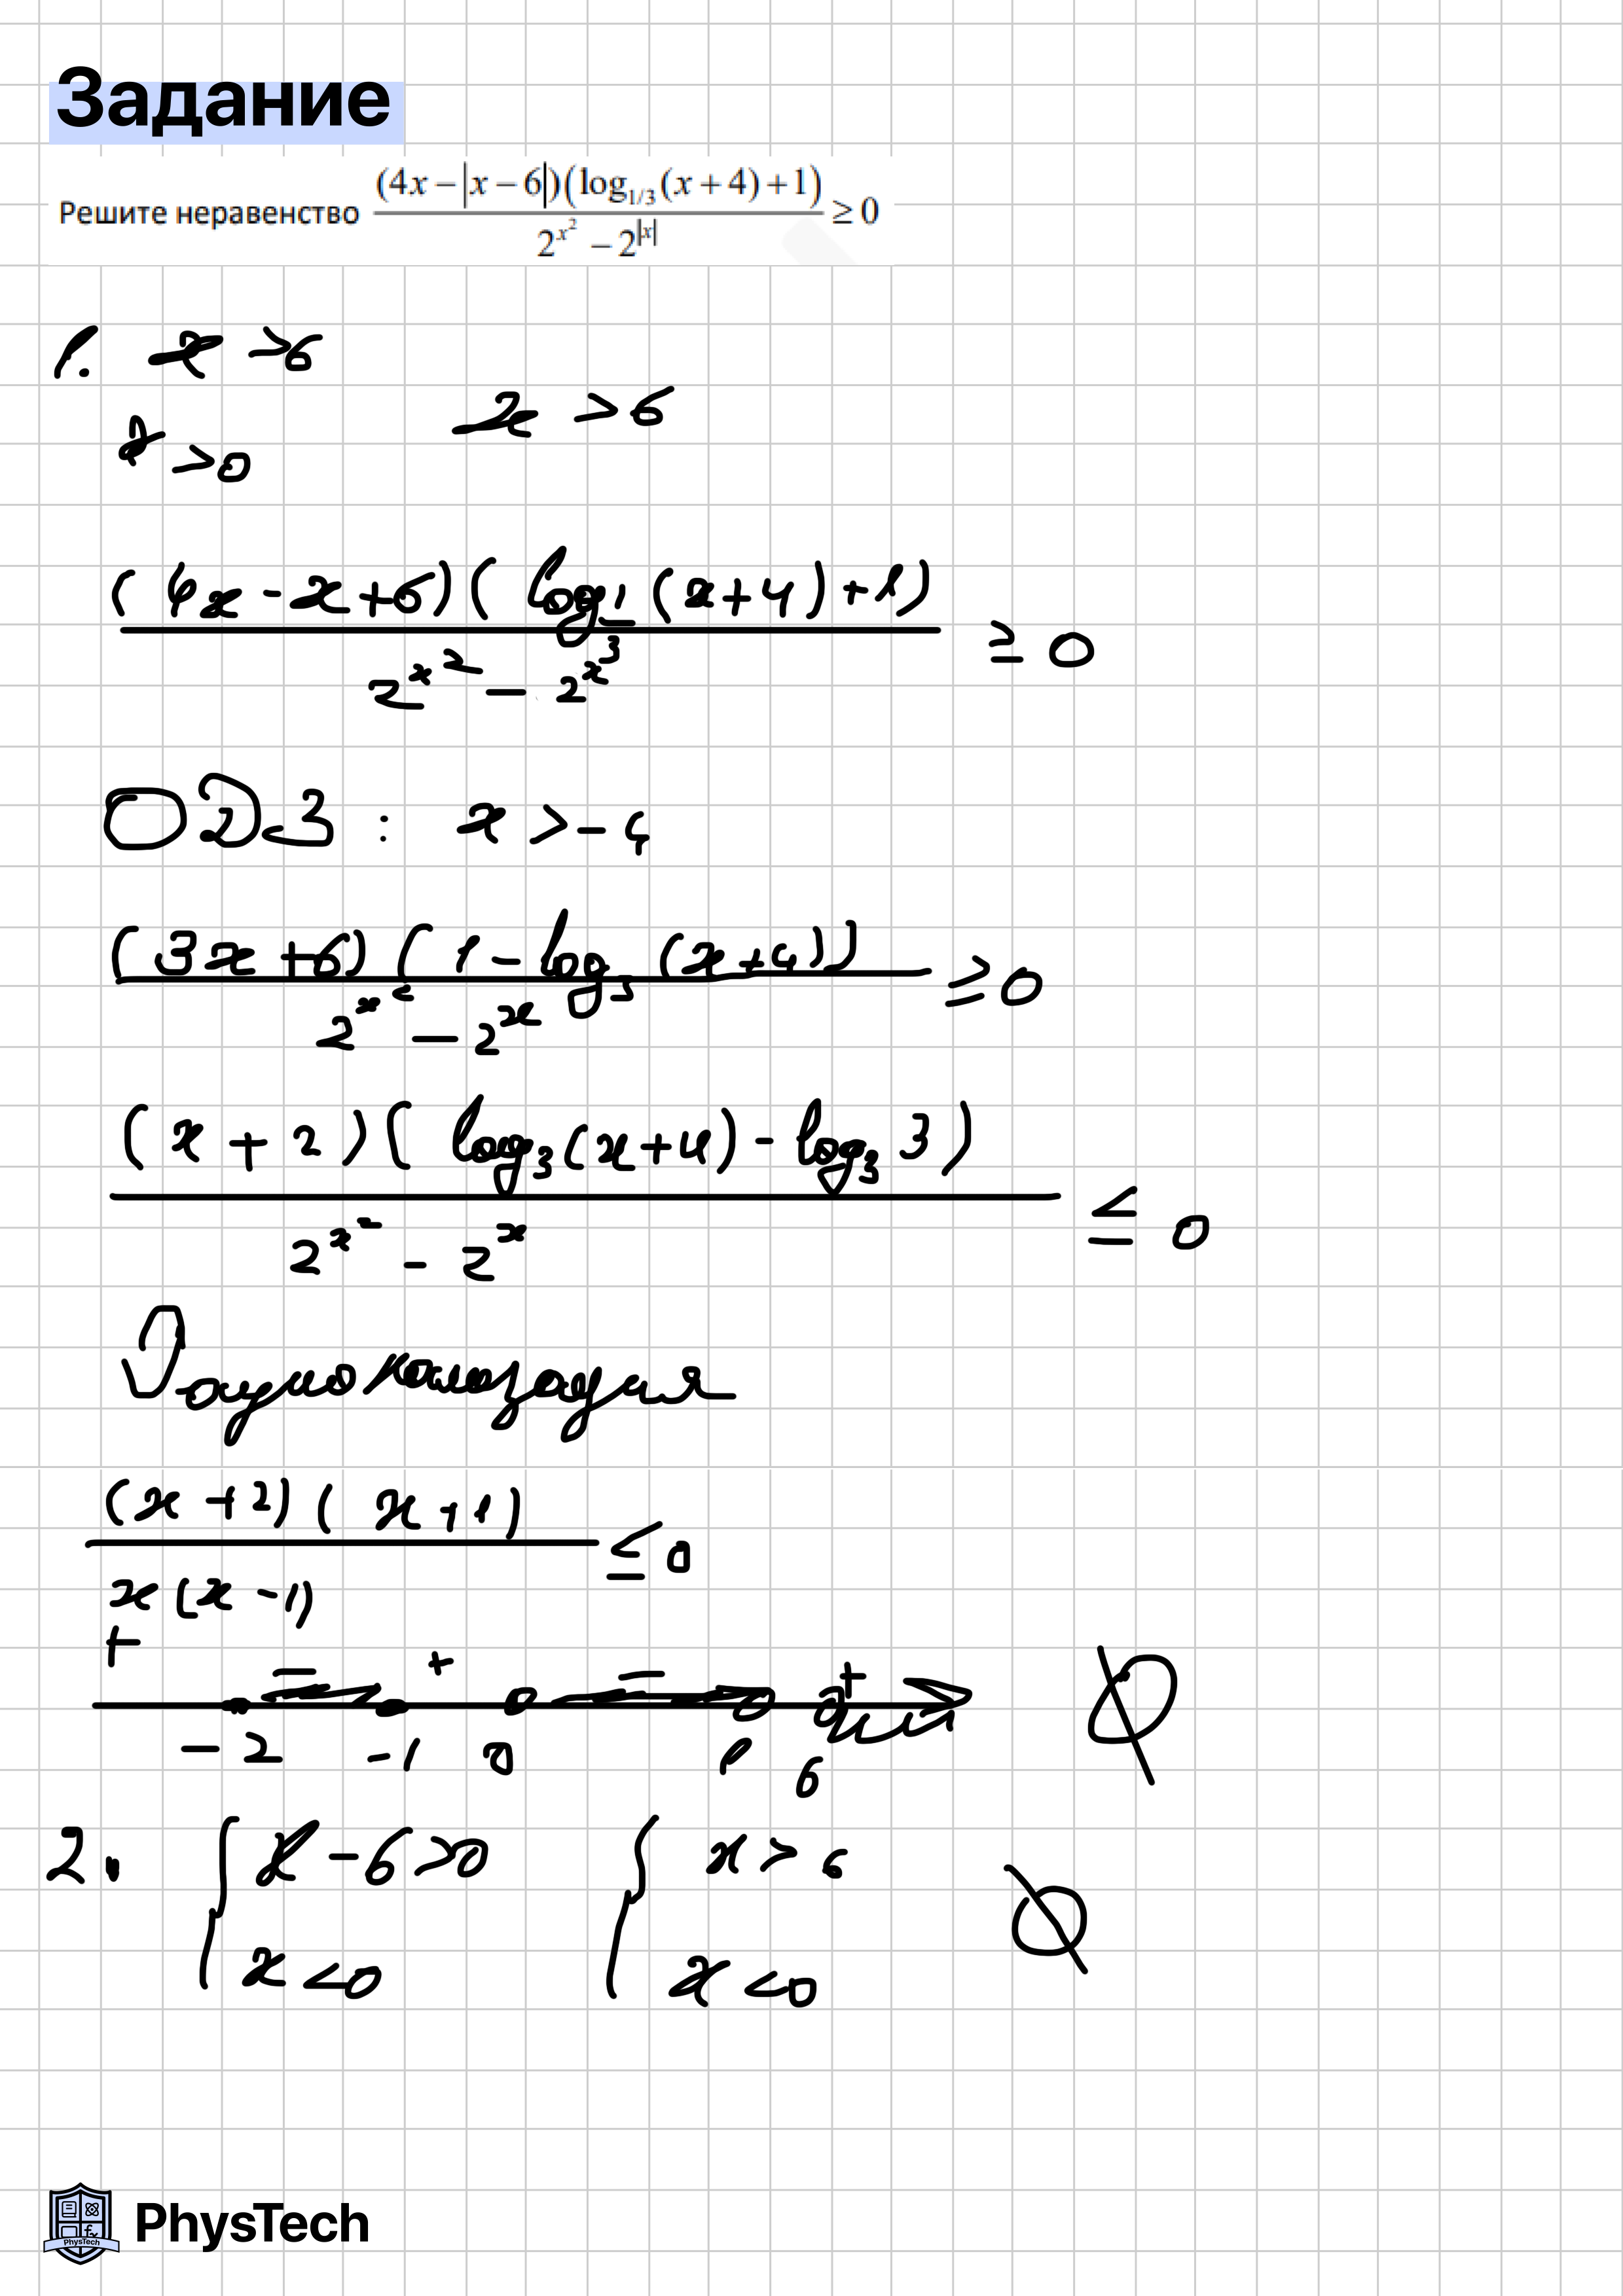 Задание
Решите неравенство (4x − |x − 6|)(log_{1/3}(x + 4) + 1) / (2^{x^2} − 2^{|x|}) ≥ 0
1. x > 6
x > 0
x > 6
(4x - x + 6)(log_{1/3}(x + 4) + 1) / (2^{x^2} - 2^x) ≥ 0
ОДЗ : x > -4
(3x + 6)(1 - log_3(x + 4)) / (2^{x^2} - 2^x) ≥ 0
(x + 2)(log_3(x + 4) - log_3 3) / (2^{x^2} - 2^x) ≤ 0
Рационализация
(x + 2)(x + 1) / x(x - 1) ≤ 0
+ − + − +
-2 -1 0 1 6
∅
2. { x - 6 > 0 { x > 6
x < 0 x < 0 ∅
PhysTech